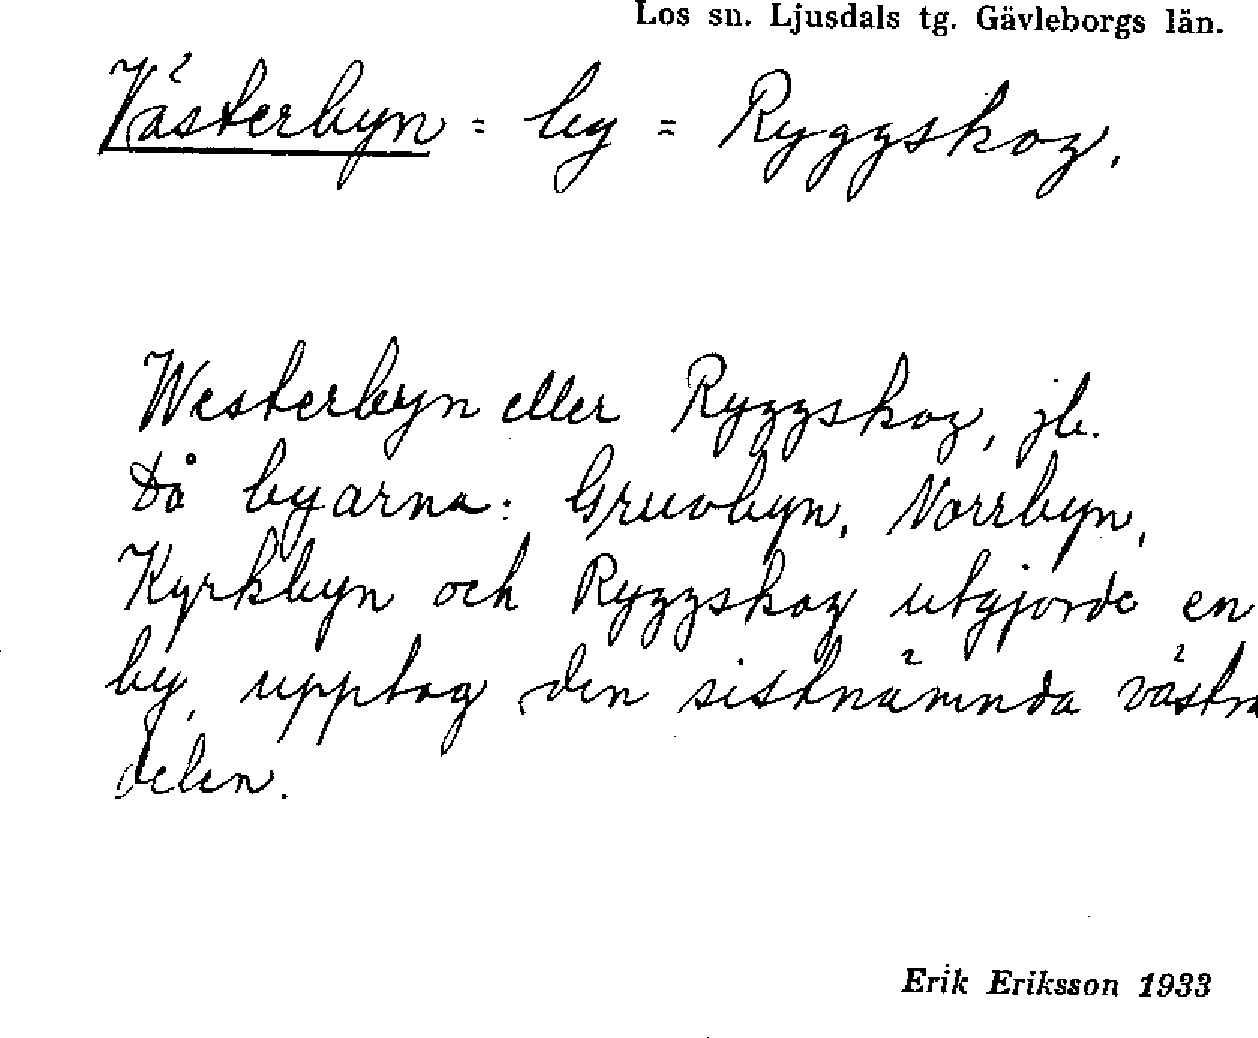 Los sn. Ljusdals tg. Gävleborgs län.
Västerbyn = by = Ryggskog.
Westerbyn eller Ryggskog, jb.
Då byarna: Gruvbyn, Norrbyn,
Kyrkbyn och Ryggskog utgjorde en
by, upptog den sistnämnda västra
delen.
Erik Eriksson 1933